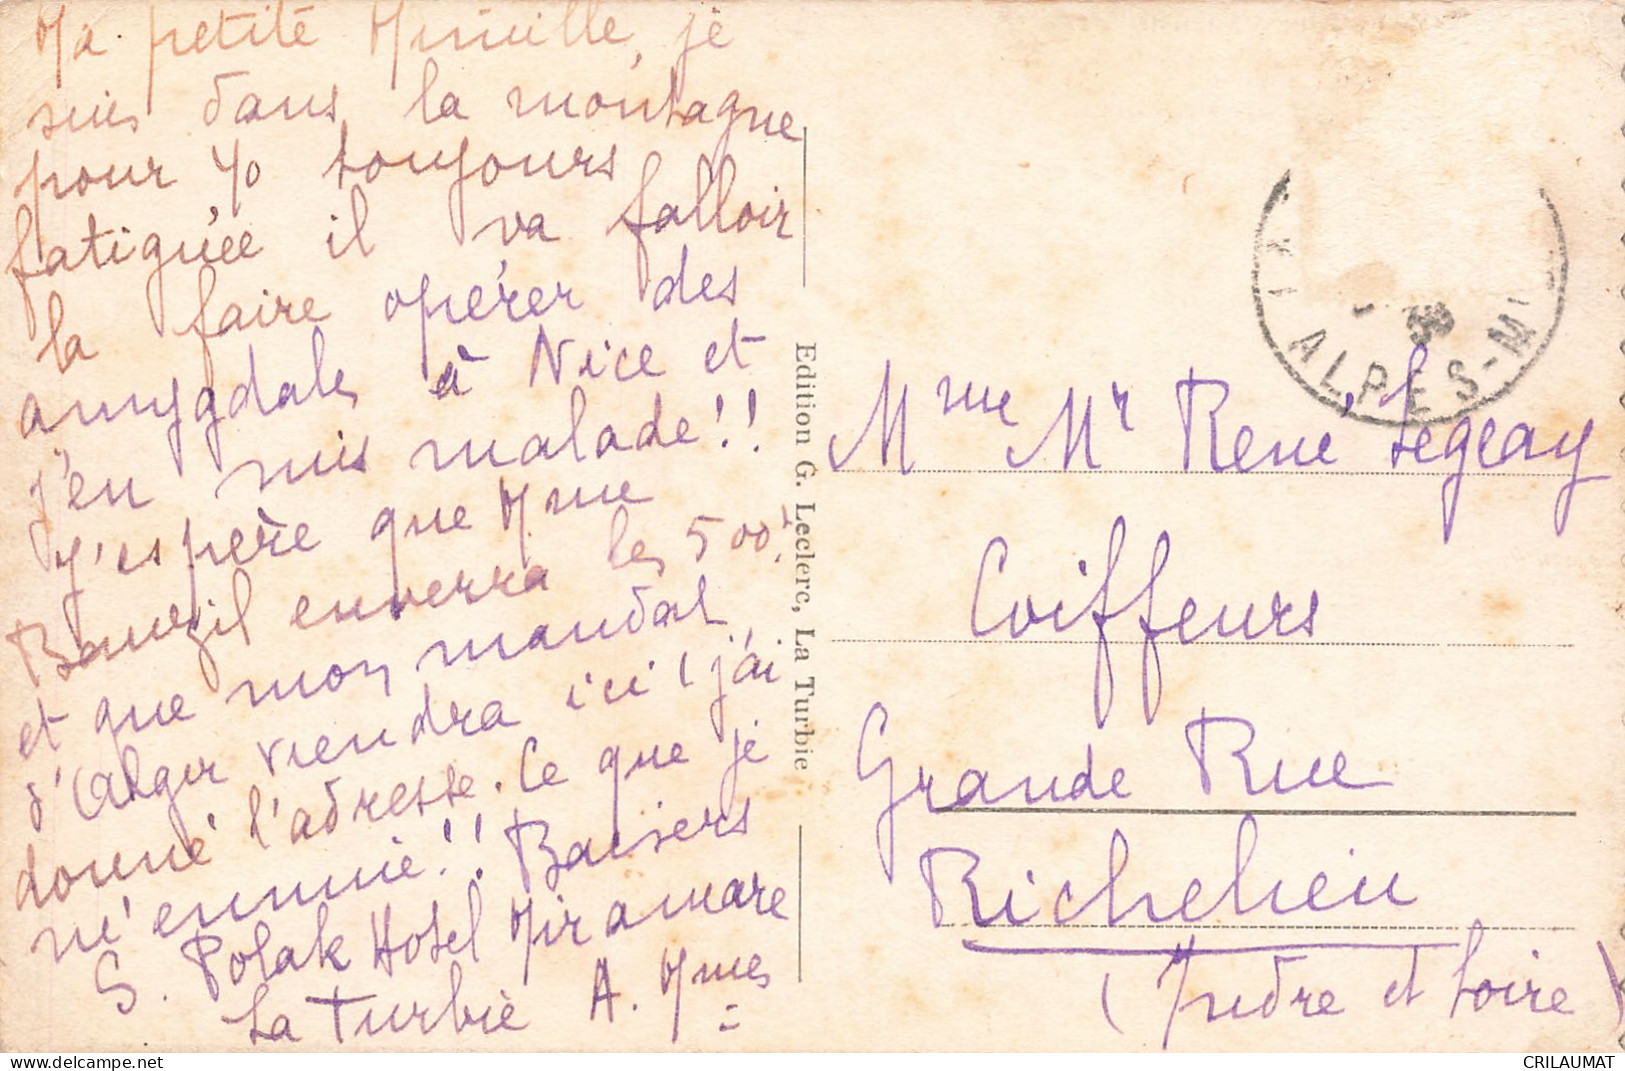 Ma petite Mireille, je
suis dans la montagne
pour Yo toujours
fatiguée il va falloir
la faire opérer des
amygdales à Nice et
j'en suis malade!!
J'espère que Mme
Bauzil enverra les 500
et que mon mandat
d'Alger viendra ici (j'ai
donné l'adresse. Ce que je
m'ennuie!! Baisers
S. Polak Hotel Miramare
La Turbie A. Mmes
Edition G. Leclerc, La Turbie
ALPES-M
Mme Mr René Legeay
Coiffeurs
Grande Rue
Richelieu
(Indre et Loire)
https://www.delcampe.net
CRILAUMAT